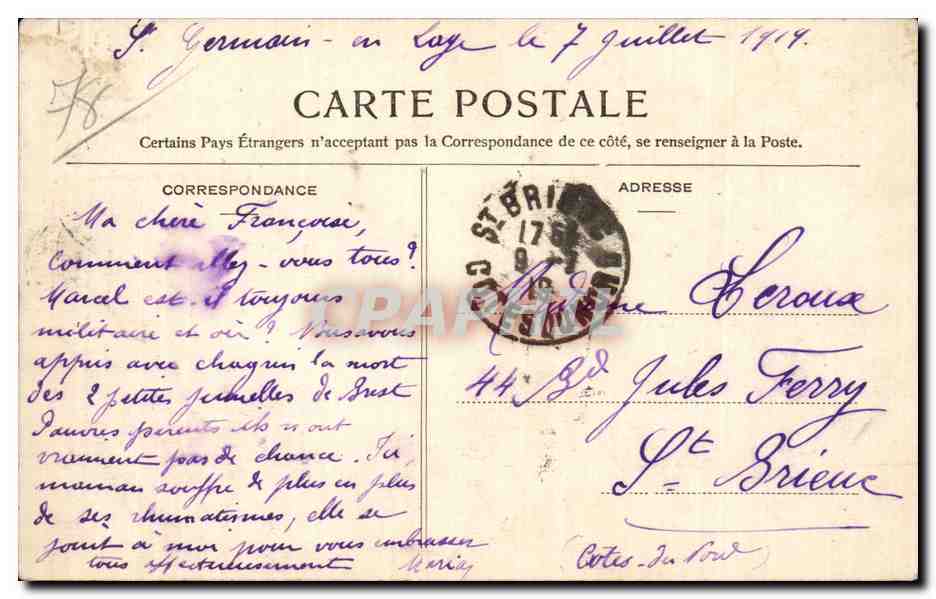 St Germain-en Laye le 7 Juillet 1919.
78
CARTE POSTALE
Certains Pays Étrangers n'acceptant pas la Correspondance de ce côté, se renseigner à la Poste.
CORRESPONDANCE
Ma chère Françoise,
comment allez-vous tous?
Marcel est-il toujours
militaire et où?
appris avec chagrin la mort
des 2 petites jumelles de Brest
Pauvres parents ils n'ont
vraiment pas de chance. Ici,
maman souffre de plus en plus
de ses rhumatismes, elle se
joint à moi pour vous embrasser
tous affectueusement Maria
ADRESSE
ST BRIEUC
CÔTES DU NORD
Madame Leroux
44 Bd Jules Ferry
St Brieuc
(Cotes-du Nord)
CPARAMA